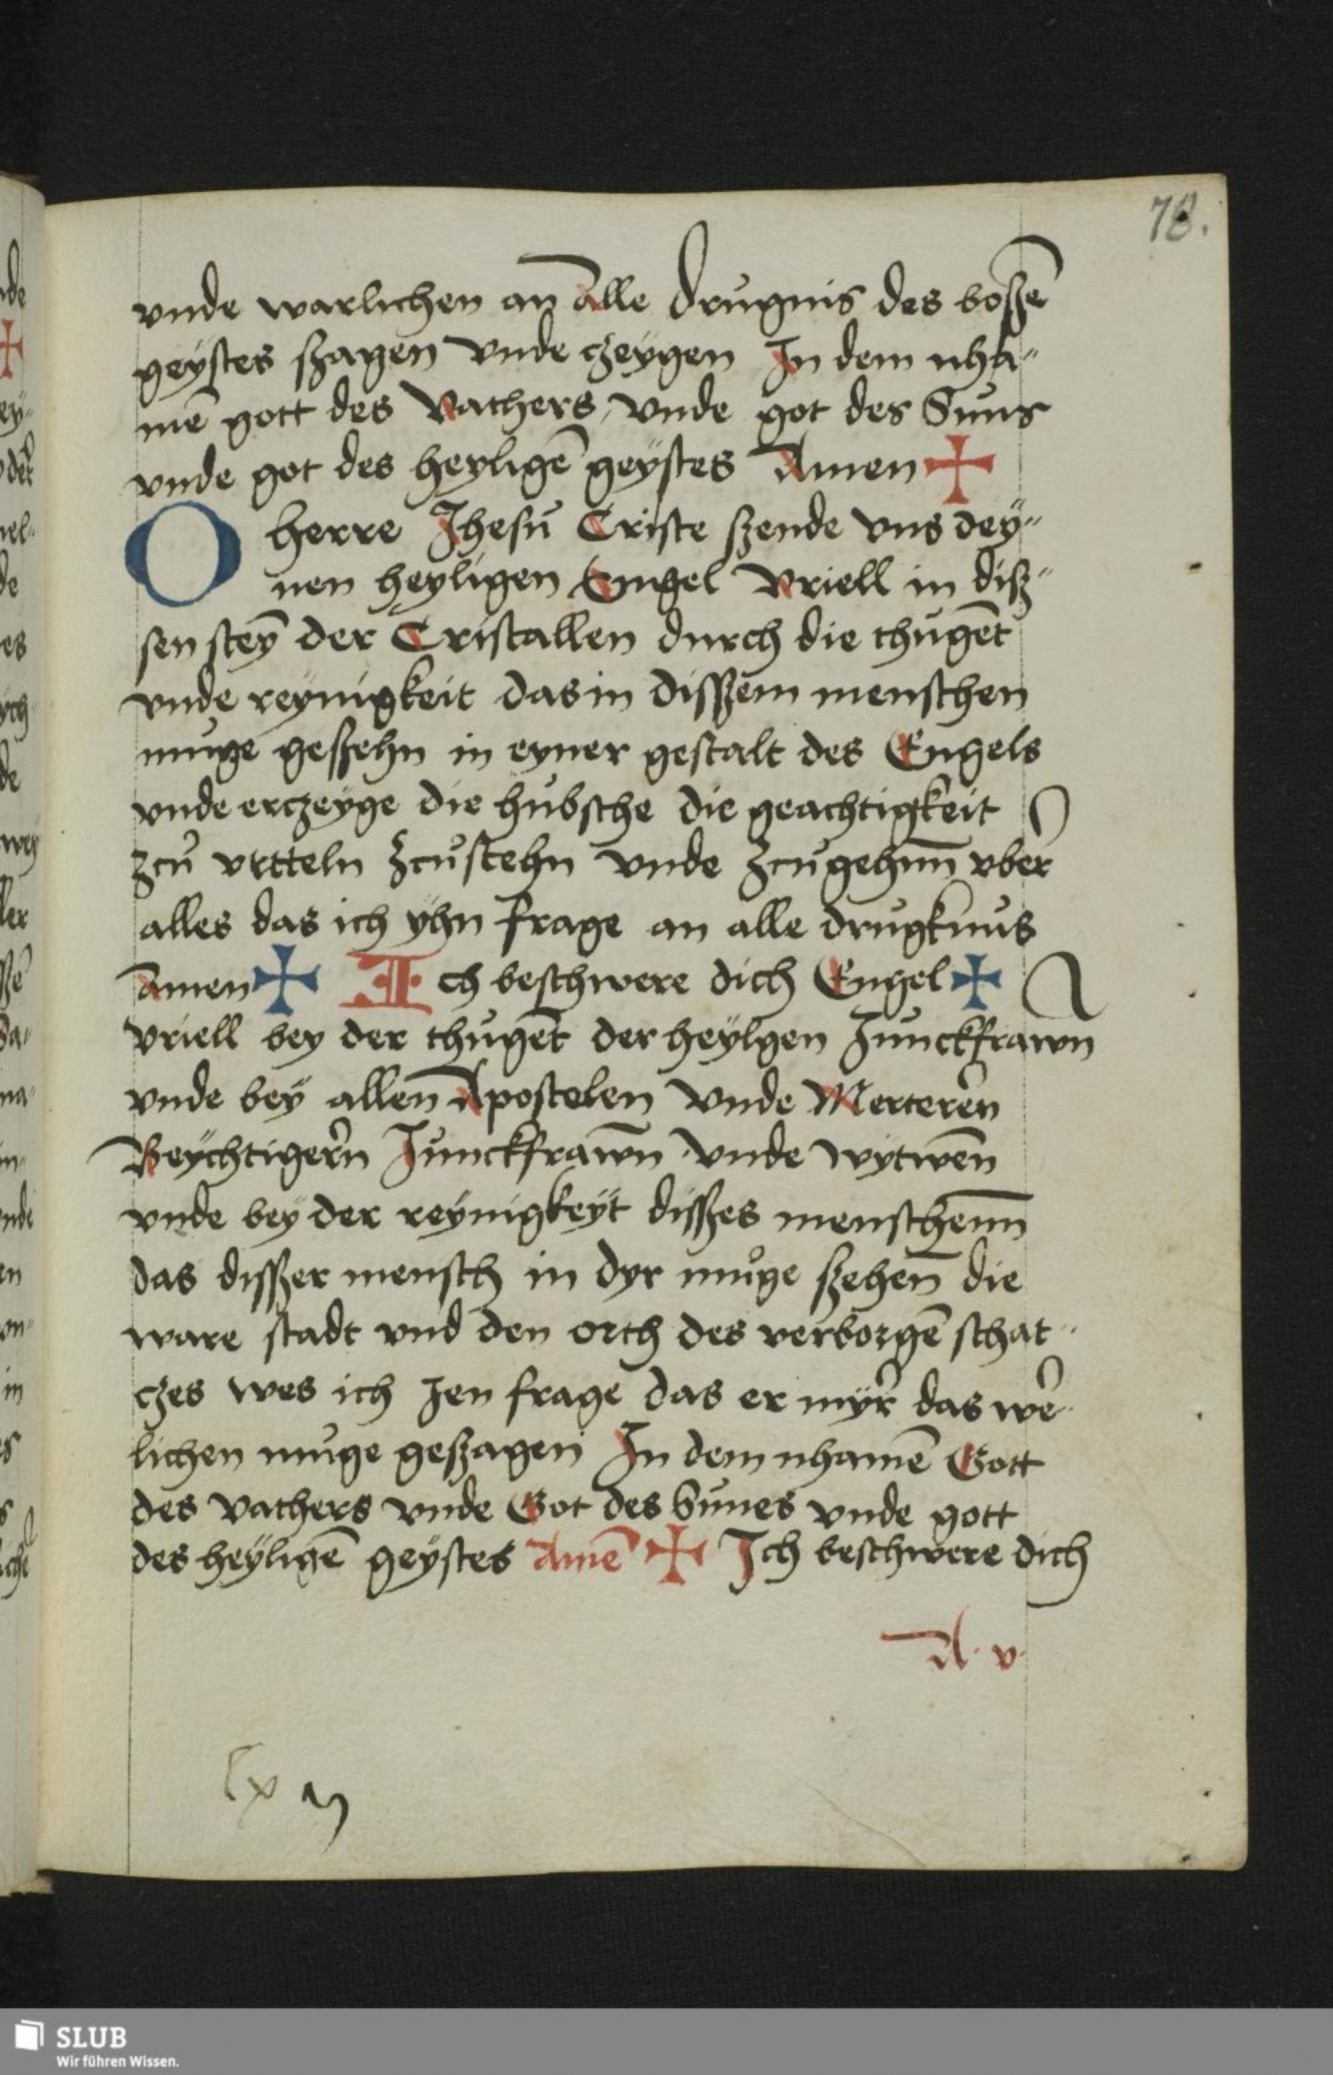 78.
vnde warlichen an alle drugnis des boßē
geystes szagen vnde czeygen In dem nha"
mē gott des Vathers vnde got des Suns
vnde got des heyligē geystes Amen ✠
O herre Jhesu Criste szende vns dey"
nen heyligen Engel Vriell in disz"
sen steȳ der Cristallen durch die thugēt
vnde reynigkeit das in disszem menschen
muge geszehn in eyner gestalt des Engels
vnde erczeyge die hubsche die geachtigkeit
zcu vrtteln zcustehn vnde zcugehnn̄ vber
alles das ich yhn frage an alle drugknus
Amen ✠ Ich beschwere dich Engel ✠
Vriell bey der thugēt der heylgen Junckfrawn
vnde bey allen̄ Apostelen vnde Merterern
Beychtigern Junckfrawn̄ vnde wytwen̄
vnde bey der reynigkeyt disszes menschenn̄
das disszer mensch in dyr muge szehen̄ die
ware stadt vnd den orth des verborgē schat"
czes wes ich Jen frage das er myr das wer
lichen muge geszagen In dem nhamē Gott
des vathers vnde Got des Sunes vnde gott
des heyligē geystes Amē ✠ Ich beschwere dich
A. v.
SLUB
Wir führen Wissen.